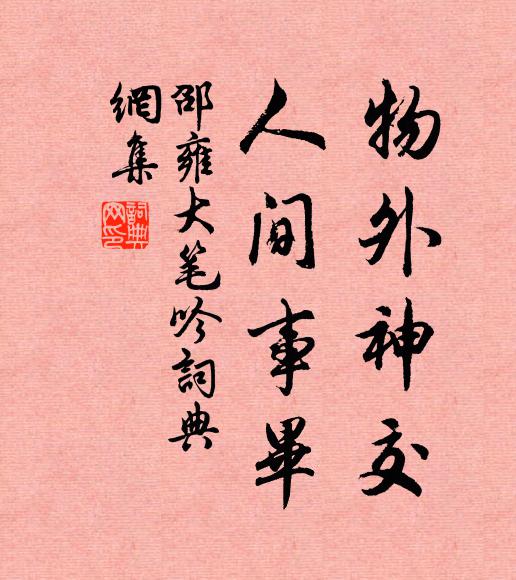 物外神交
人間事畢
邵雍大笔吟詞典
網集
詞典
网印